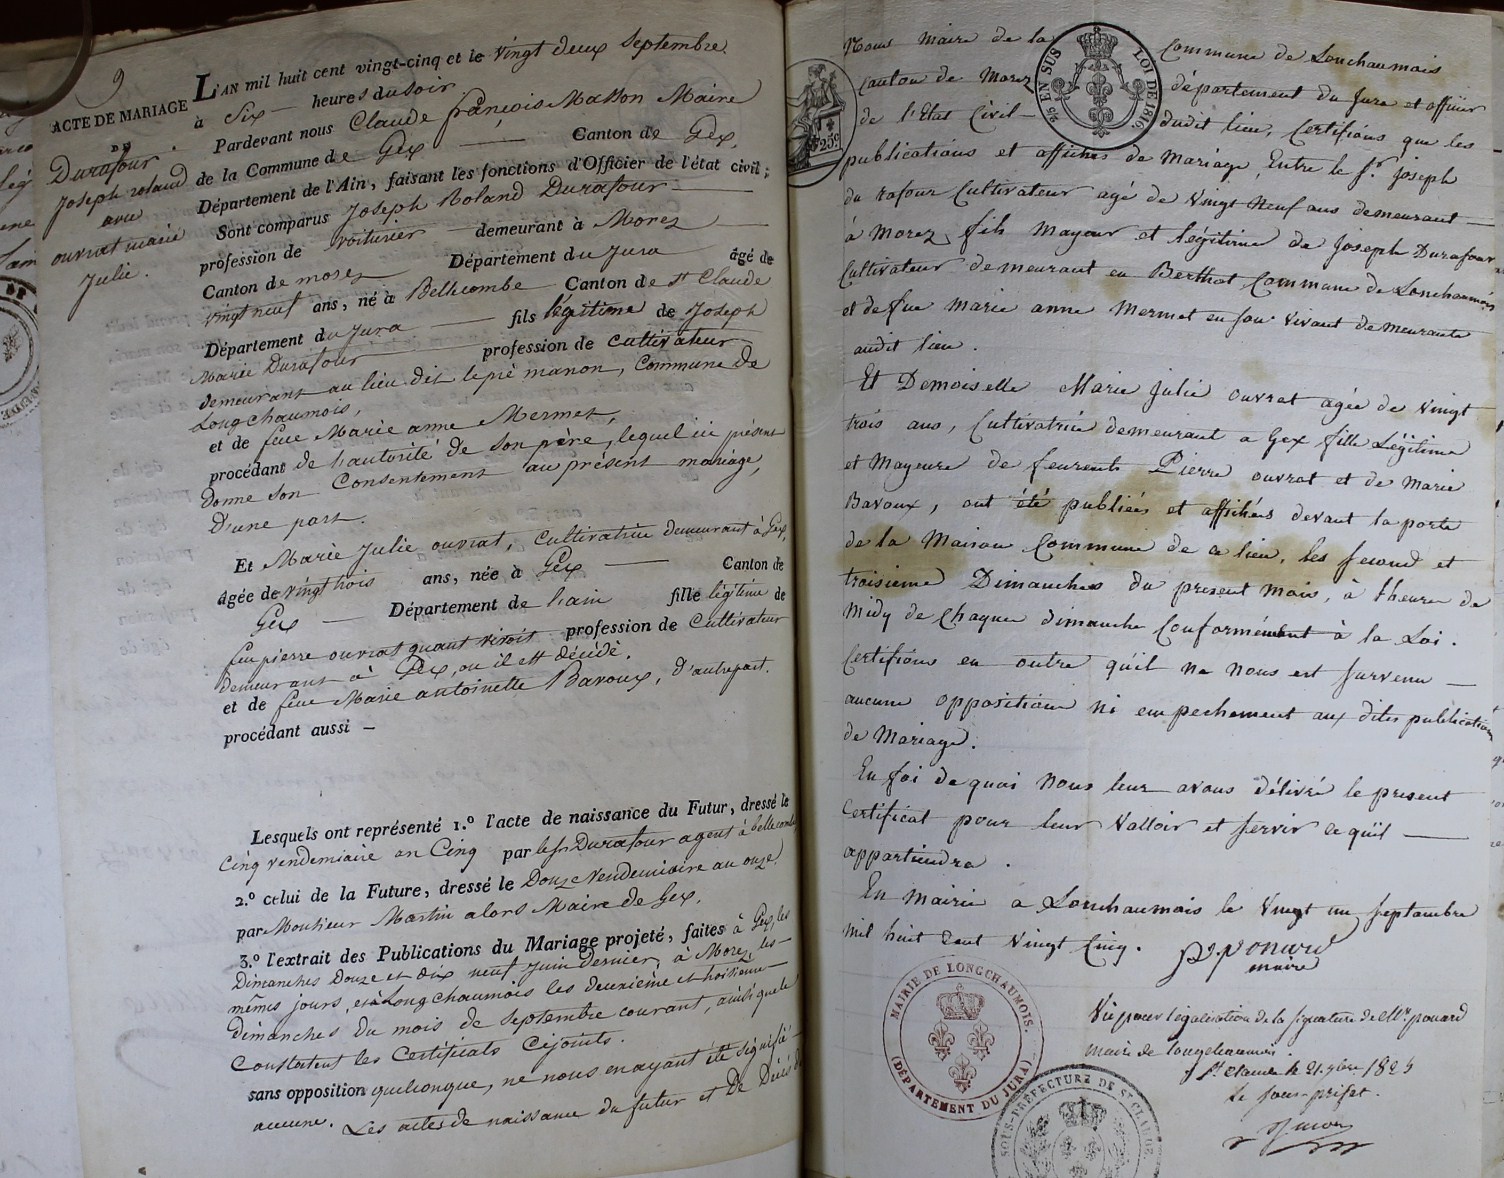 9
ACTE DE MARIAGE
DE
Durafour
Joseph roland
avec
ouvrat marie
Julie.
L'AN mil huit cent vingt-cinq et le vingt deux Septembre
à Six heures du soir
Pardevant nous Claude françois Masson Maire
de la Commune de Gex Canton de Gex,
Département de l'Ain, faisant les fonctions d'Officier de l'état civil;
Sont comparus Joseph Roland Durafour
profession de voiturier demeurant à Morez
Canton de morez Département du Jura âgé de
vingt neuf ans, né à Bellecombe Canton de St Claude
Département du Jura fils légitime de Joseph
Marie Durafour profession de cultivateur
demeurant au lieu dit le pré manon, Commune de
Longchaumois,
et de feue Marie anne Mermet,
procédant de l'autorité de son père, lequel ici présent
donne son Consentement au présent mariage,
D'une part.
Et Marie Julie ouvrat, cultivatrice demeurant à Gex,
âgée de vingt trois ans, née à Gex Canton de
Gex Département de l'ain fille légitime de
feu pierre ouvrat quant vivoit profession de Cultivateur
demeurant à Gex, ou il est décédé.
et de feue Marie antoinette Bavoux, d'autre part.
procédant aussi
Lesquels ont représenté 1.º l'acte de naissance du Futur, dressé le
Cinq vendemiaire an Cinq par le sr Durafour agent à belle combe
2.º celui de la Future, dressé le Douze Vendemiaire an onze
par Monsieur Martin alors Maire de Gex,
3.º l'extrait des Publications du Mariage projeté, faites à Gex, les
Dimanches Douze et dix neuf Juin dernier, à Morez, les
mêmes jours, et à Longchaumois les deuxième et troisième
dimanches du mois de Septembre courant, ainsi que le
Constatent les Certificats Cijoints.
sans opposition quelconque, ne nous en ayant été signifié
aucune. Les actes de naissance du futur et De Décès de
Nous maire de la Commune de Lonchaumois
Canton de Morez département du Jura et officier
de l'Etat Civil dudit lieu, Certifions que les
publications et affiches de Mariage, Entre le Sr. Joseph
du rafour Cultivateur agé de Vingt Neuf ans demeurant
à Morez, fils Mayeur et légitime de Joseph Durafour
Cultivateur demeurant en Berthod Commune de Lonchaumois
et de feue Marie anne Mermet en son vivant demeurante
audit lieu.
Et Demoiselle Marie Julie ouvrat agée de vingt
trois ans, Cultivatrice demeurant a Gex fille Légitime
et Mayeure de feurent Pierre ouvrat et de Marie
Bavoux, ont été publiées et affichés devant la porte
de la Maison Commune de ce lieu, les second et
troisieme Dimanches du present Mois, à l'heure de
Midy de Chaque dimanche Conformément à la Loi.
Certifions en outre qu'il ne nous est survenu
aucune opposition ni empechement aux dites publications
de Mariage.
En foi de quoi Nous leur avons délivré le present
Certificat pour leur Valloir et servir ce qu'il
appartiendra.
En Mairie a Lonchaumois le Vingt un septembre
Mil huit cent Vingt Cinq.
ponard
maire
Vu pour légalisation de la signature de Mr. ponard
maire de Longchaumois.
St. Claude le 21 7bre 1825
Le sous-préfet.
EN SUS
LOI DE 1816.
25c
MAIRIE DE LONGCHAUMOIS.
(DÉPARTEMENT DU JURA)
SOUS-PRÉFECTURE DE ST CLAUDE,